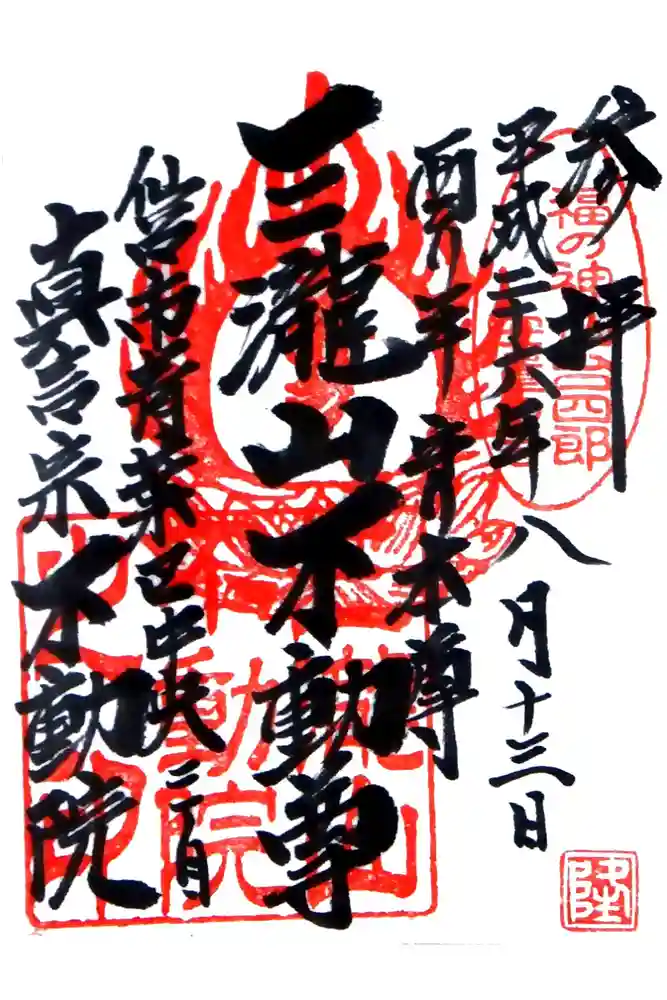 参拝
平成二十八年八月十三日
酉年 本尊
三瀧山不動尊
仙台市青葉区中央二丁目
真言宗 不動院
福の神 四郎